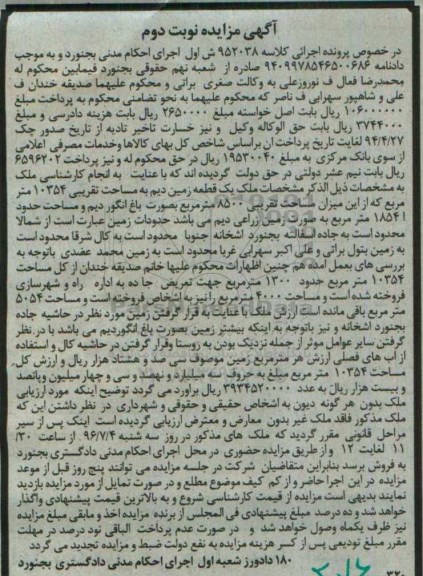 آگهی مزایده نوبت دوم
در خصوص پرونده اجرائی کلاسه ۹۵۲۰۳۸ ش اول اجرای احکام مدنی بجنورد و به موجب
دادنامه ۹۴۰۹۹۷۸۵۴۶۵۰۰۶۸۶ صادره از شعبه نهم حقوقی بجنورد فیمابین محکوم له
محمدرضا فعال ف نوروزعلی به وکالت صغری براتی و محکوم علیهما صدیقه خندان ف
علی و شاهپور سهرابی ف ناصر که محکوم علیهما به نحو تضامنی محکوم به پرداخت مبلغ
۱۰۶۰۰۰۰۰۰ ریال بابت اصل خواسته مبلغ ۲۶۵۰۰۰۰ ریال بابت هزینه دادرسی و مبلغ
۳۷۴۴۰۰۰ ریال بابت حق الوکاله وکیل و نیز خسارت تاخیر تادیه از تاریخ صدور چک
۹۴/۴/۲۷ لغایت تاریخ پرداخت ان براساس شاخص کل بهای کالاها وخدمات مصرفی اعلامی
از سوی بانک مرکزی به مبلغ ۱۹۵۳۰۰۴۰ ریال در حق محکوم له و نیز پرداخت ۶۵۹۶۲۰۲
ریال بابت نیم عشر دولتی در حق دولت گردیده اند که با عنایت به انجام کارشناسی ملک
به مشخصات ذیل الذکر مشخصات ملک یک قطعه زمین دیم به مساحت تقریبی ۱۰۳۵۴ متر
مربع که از این میزان مساحت تقریبی ۸۵۰۰ مترمربع بصورت باغ انگور دیم و مساحت حدود
۱۸۵۴ متر مربع به صورت زمین زراعی دیم می باشد حدودات زمین عبارت است از شمالا
محدود است به جاده آسفالته بجنورد اشخانه جنوبا محدود است به کال شرقا محدود است
به زمین بتول براتی و علی اکبر سهرابی غربا محدود است به زمین محمد عضدی باتوجه به
بررسی های بعمل امده هم چنین اظهارات محکوم علیها خانم صدیقه خندان از کل مساحت
۱۰۳۵۴ متر مربع حدود ۱۳۰۰ مترمربع جهت تعریض جا ده به اداره راه و شهرسازی
فروخته شده است و مساحت ۴۰۰۰ مترمربع را نیز به اشخاص فروخته است و مساحت ۵۰۵۴
متر مربع باقی مانده است ارزش ملک با عنایت به قرار گرفتن زمین مورد نظر در حاشیه جاده
بجنورد اشخانه و نیز باتوجه به اینکه بیشتر زمین بصورت باغ انگوردیم می باشد با در نظر
گرفتن سایر عوامل موثر از جمله نزدیک بودن به روستا وقرار گرفتن در حاشیه کال و استفاده
از آب های فصلی ارزش هر مترمربع زمین موصوف سی صد و هشتاد هزار ریال و ارزش کل
مساحت ۱۰۳۵۴ متر مربع مبلغ به حروف سه میلیارد و نهصد و سی و چهار میلیون وپانصد
و بیست هزار ریال به عدد ۳۹۳۴۵۲۰۰۰۰ ریال براورد می گردد توضیح اینکه مورد ارزیابی
ملک بدون هر گونه دیون به اشخاص حقیقی و حقوقی و شهرداری در نظر داشتن این که
ملک مذکور فاقد ملک غیر بدون معارض و معترض ارزیابی گردیده است اینک پس از سیر
مراحل قانونی مقرر گردید که ملک های مذکور در روز سه شنبه ۹۶/۷/۴ از ساعت ۳۰/
۱۱ لغایت ۱۲ و از طریق مزایده حضوری در محل اجرای احکام مدنی دادگستری بجنورد
به فروش برسد بنابراین متقاضیان شرکت در جلسه مزایده می توانند پنج روز قبل از موعد
مزایده در این اجرا حاضر و از کم کیف موضوع مطلع و در صورت تمایل از مورد مزایده بازدید
نمایند بدیهی است مزایده از قیمت کارشناسی شروع و به بالاترین قیمت پیشنهادی واگذار
خواهد شد و ده درصد مبلغ پیشنهادی فی المجلس از برنده مزایده اخذ و مابقی مبلغ مزایده
نیز ظرف یکماه وصول خواهد شد و در صورت عدم پرداخت الباقی نود درصد در مهلت
مقرر مبلغ تودیعی پس از کسر هزینه مزایده به نفع دولت ضبط و مزایده تجدید می گردد
۱۸۰ دادورز شعبه اول اجرای احکام مدنی دادگستری بجنورد